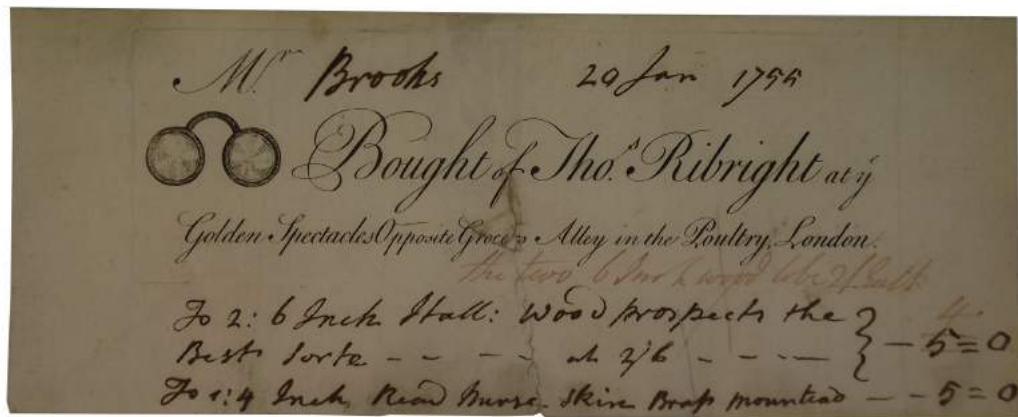 Mr. Brooks 20 Jan 1755
Bought of Thos. Ribright at ye
Golden Spectacles Opposite Grocers Alley in the Poultry, London.
the two 6 Inch wood
4
To 2: 6 Inch Ital: Wood prospects the
Best Sorte - - - - at 2/6 - - - - - 5=0
To 1: 4 Inch Read Nurse skin Brass mounted - - 5=0